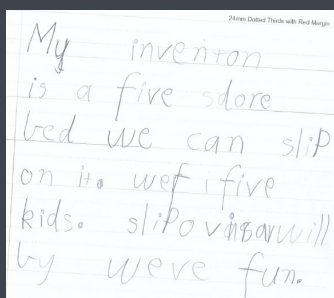 24mm Dotted Thirds with Red Margin
My inventon
is a five sdore
bed we can slip
on it. wef i five
kids. slipo will
by weve fun.